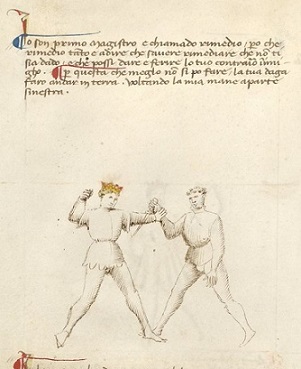 Io son primo magistro e chiamado rimedio, po che
rimedio tãto e a dire che savere rimediare che nõ ti
sia dado, e che possi dare e ferire lo tuo contrario inimi-
gho. Per questa che meglo nõ si po fare, la tua daga
farò andar in terra. voltando la mia mane aparte
sinestra.